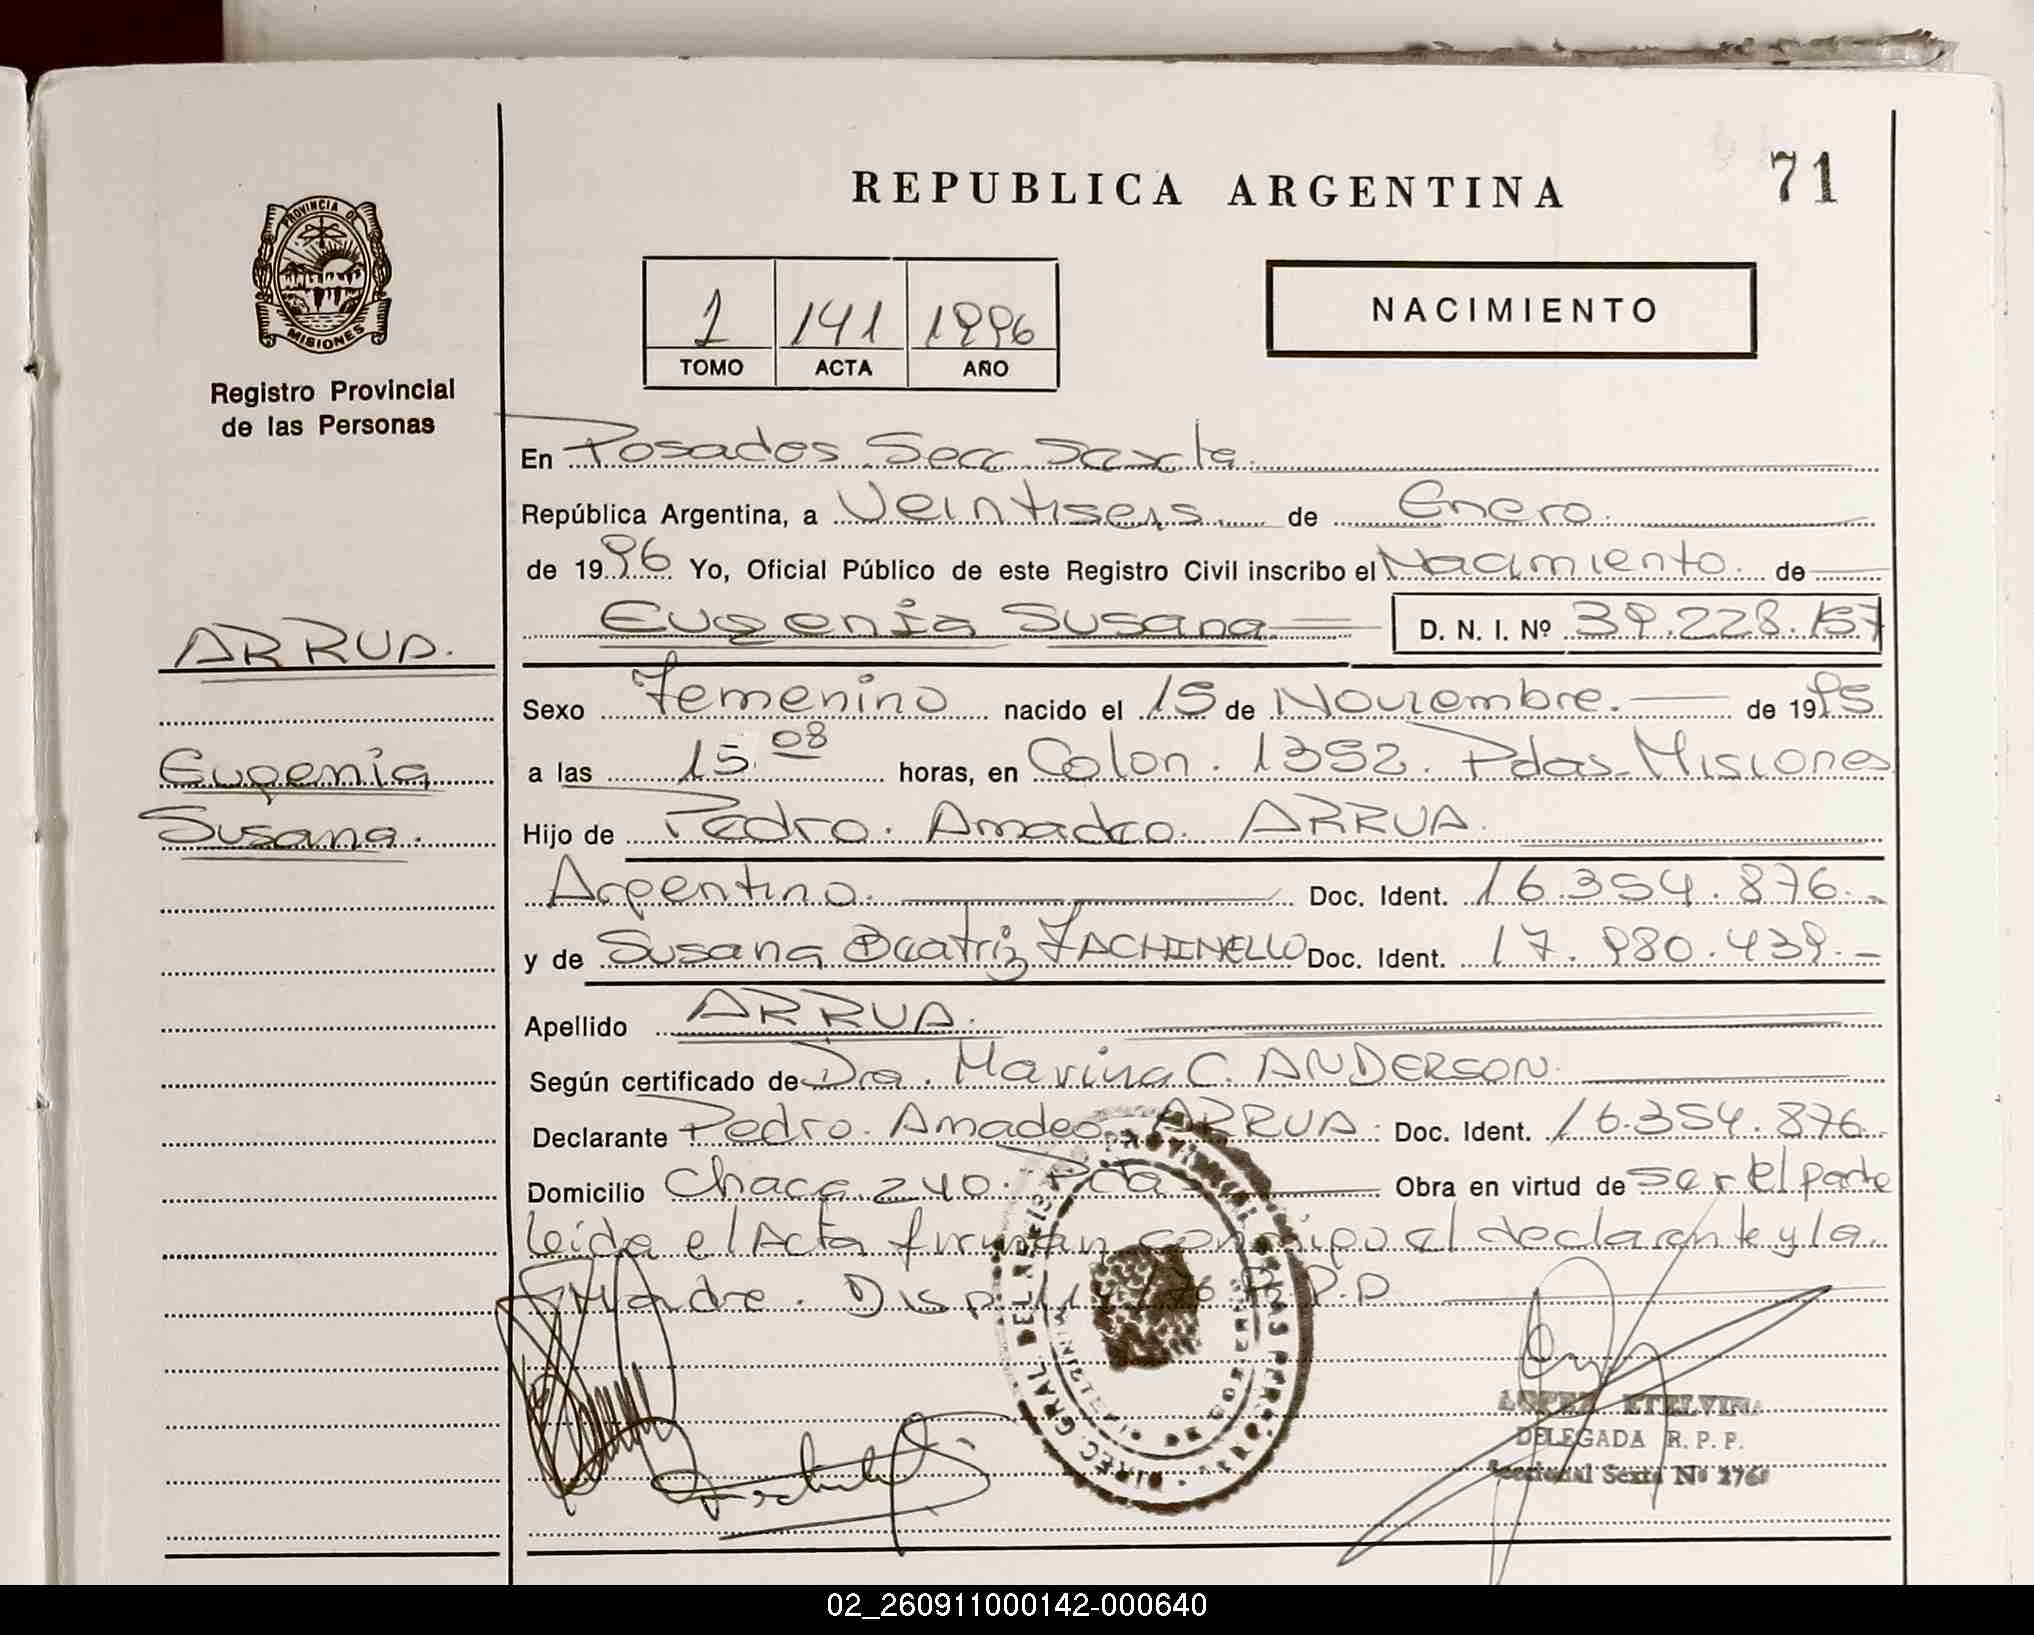 PROVINCIA DE
MISIONES
Registro Provincial
de las Personas
ARRUA.
Eugenia
Susana.
71
REPUBLICA ARGENTINA
1 141 1996
TOMO ACTA AÑO
NACIMIENTO
En Posadas Secc Sexta
República Argentina, a Veintiseis de Enero
de 1996 Yo, Oficial Público de este Registro Civil inscribo el Nacimiento de
Eugenia Susana D. N. I. Nº 39.228.157
Sexo Femenino nacido el 15 de Noviembre. de 1995
a las 15.08 horas, en Colon. 1352. Pdas. Misiones
Hijo de Pedro. Amadeo. ARRUA.
Argentino. Doc. Ident. 16.354.876.-
y de Susana Beatriz FACHINELLO Doc. Ident. 17.980.439.-
Apellido ARRUA.
Según certificado de Dra. Marina C. ANDERSON.
Declarante Pedro. Amadeo. ARRUA. Doc. Ident. 16.354.876.
Domicilio Chaca 240. Pda Obra en virtud de ser el padre
leida el Acta firman conmigo el declarante y la
Madre. Disp. R.P.P
DIREC. GRAL. DEL REGIS PROVINCIAL DE LAS PERSONAS
LOPEZ ETELVINA
DELEGADA R. P. P.
Seccional Sexta Nº 276
02_260911000142-000640